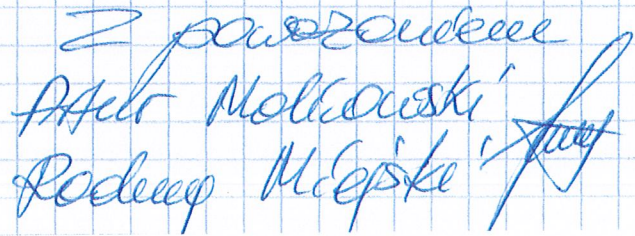 Z poważaniem
Artur Malikowski
Radny Miejski